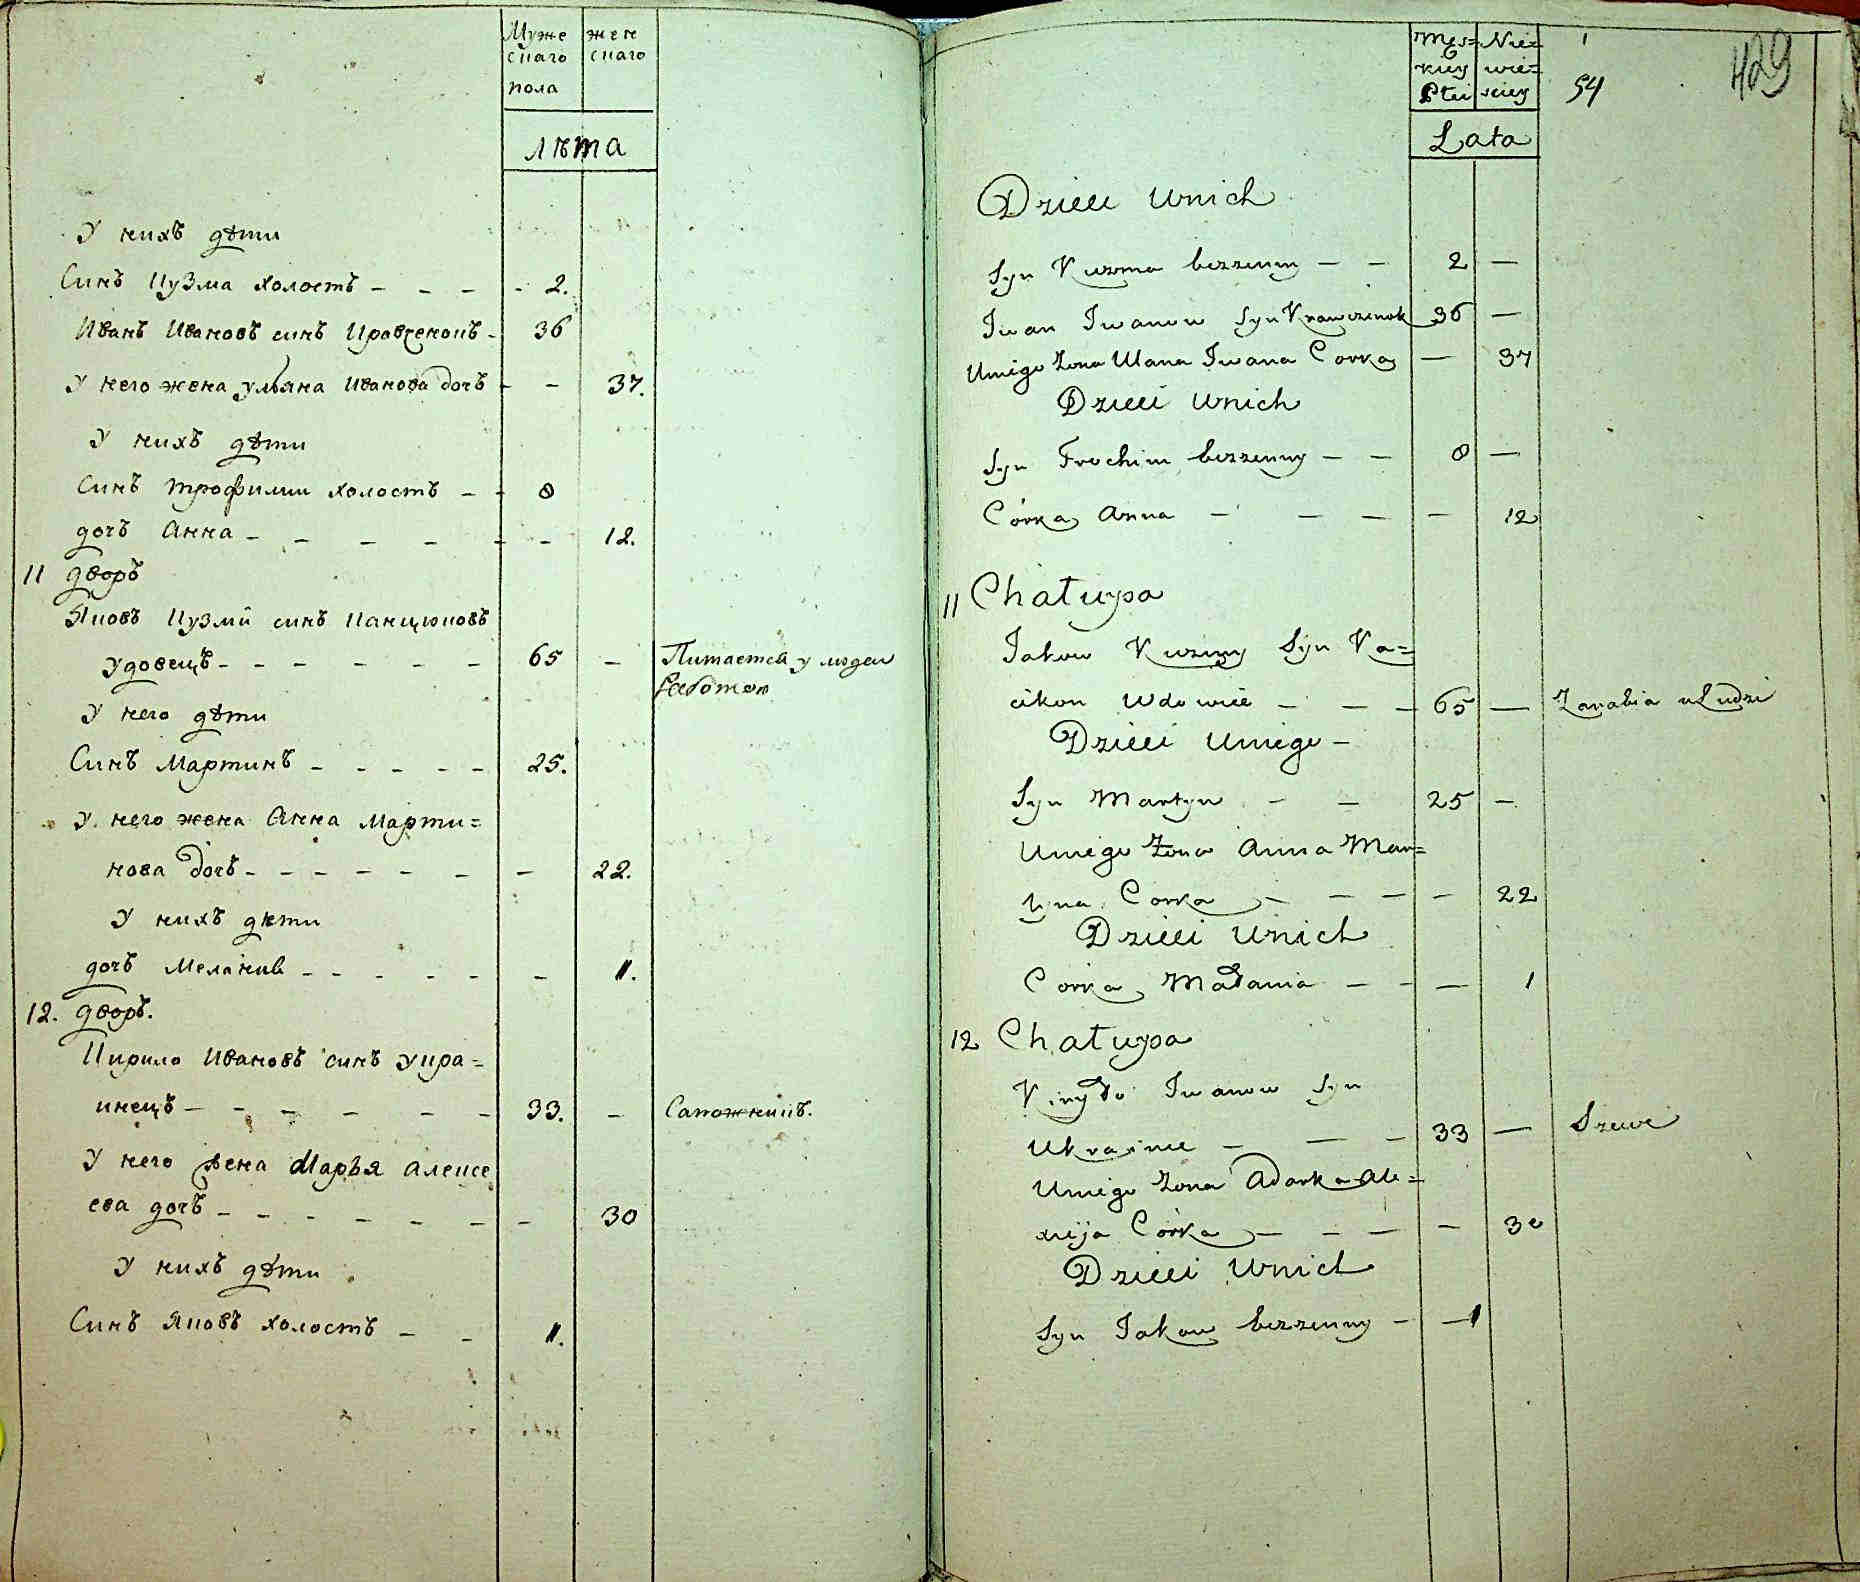 Муже
скаго
пола
жен
скаго
лѣта
У нихъ дѣти
Синъ Кузма холостъ - - - - 2.
Иванъ Ивановъ синъ Кравченокъ - 36
У него жена ульяна Иванова дочъ - - 37.
У нихъ дѣти
Синъ трофимъ холостъ - - 8
дочъ Анна - - - - - - 12.
11 дворъ
Яковъ Кузми синъ
удовецъ - - - - - - 65 - Питается у людеи
работою
У него дѣти
Синъ Мартинъ - - - - - 25.
У него жена Анна Марти=
нова дочъ - - - - - - - 22.
У нихъ дѣти
дочъ Меланиѣ - - - - - - 1.
12. дворъ.
Кирило Ивановъ синъ укра=
инецъ - - - - - - 33. - Сапожникъ.
У него жена Марья алексе
ева дочъ - - - - - - - 30
У нихъ дѣти
Синъ Яковъ холостъ - - 1.
Męs=
kiey
Płci
Nie=
wie=
sciey
54
429
Lata
Dzieci Unich
Syn Kuzma bezzenny - - 2 -
Iwan Iwanow Syn Krawczenok 36 -
Uniego Zona Ulana Iwana Corka - 37
Dzieci Unich
Syn Trochim bezzenny - - 8 -
Córka Anna - - - - 12
11 Chałupa
Jakow Kuzmy Syn
Wdowiec - - - 65 - Zarabia u Ludzi
Dzieci Uniego -
Syn Martyn - - 25 -
Uniego Zona Anna Mar=
tyna Corka - - - - 22
Dzieci Unich
Corka Małania - - - 1
12 Chałupa
Kiryło Iwanow Syn
Ukrainiec - - - 33 - Szewc
Uniego Zona Adarka Ale=
xieja Córka - - - - 30
Dzieci Unich
Syn Jakow bezzenny - - 1